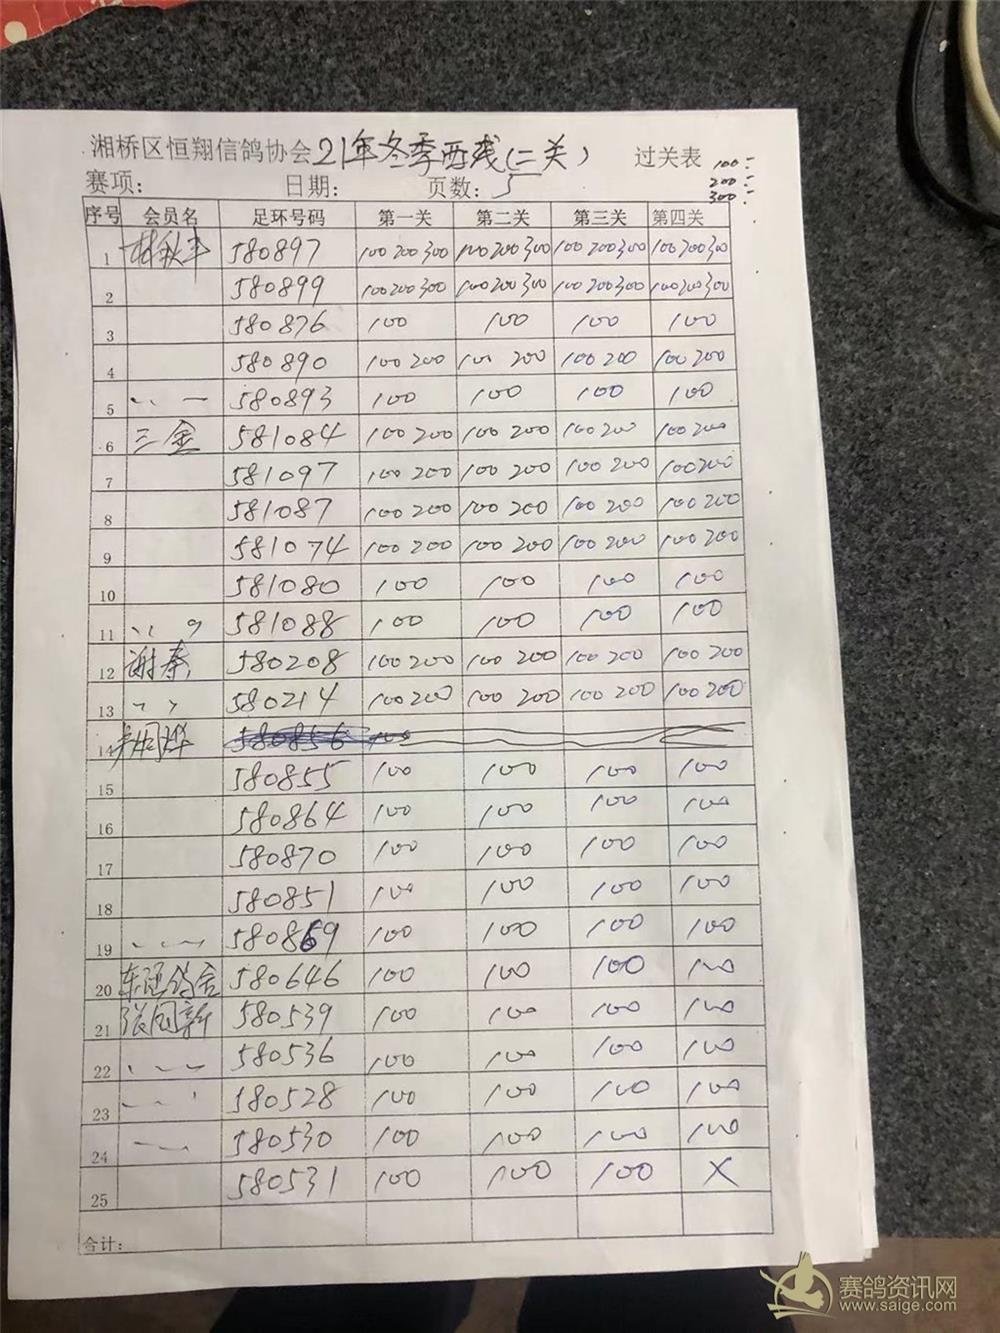 湘桥区恒翔信鸽协会21年冬季两残(二关) 过关表 100:
赛项: 日期: 页数: 5 200:
300:
序号 会员名 足环号码 第一关 第二关 第三关 第四关
1 林秋丰 580897 100 200 300 100 200 300 100 200 300 100 200 300
2 580899 100 200 300 100 200 300 100 200 300 100 200 300
3 580876 100 100 100 100
4 580890 100 200 100 200 100 200 100 200
5 580893 100 100 100 100
6 三金 581084 100 200 100 200 100 200 100 200
7 581097 100 200 100 200 100 200 100 200
8 581087 100 200 100 200 100 200 100 200
9 581074 100 200 100 200 100 200 100 200
10 581080 100 100 100 100
11 581088 100 100 100 100
12 谢泰 580208 100 200 100 200 100 200 100 200
13 580214 100 200 100 200 100 200 100 200
14 580856 100
15 580855 100 100 100 100
16 580864 100 100 100 100
17 580870 100 100 100 100
18 580851 100 100 100 100
19 580869 100 100 100 100
20 580646 100 100 100 100
21 580539 100 100 100 100
22 580536 100 100 100 100
23 580528 100 100 100 100
24 580530 100 100 100 100
25 580531 100 100 100 X
合计:
赛鸽资讯网
www.saige.com